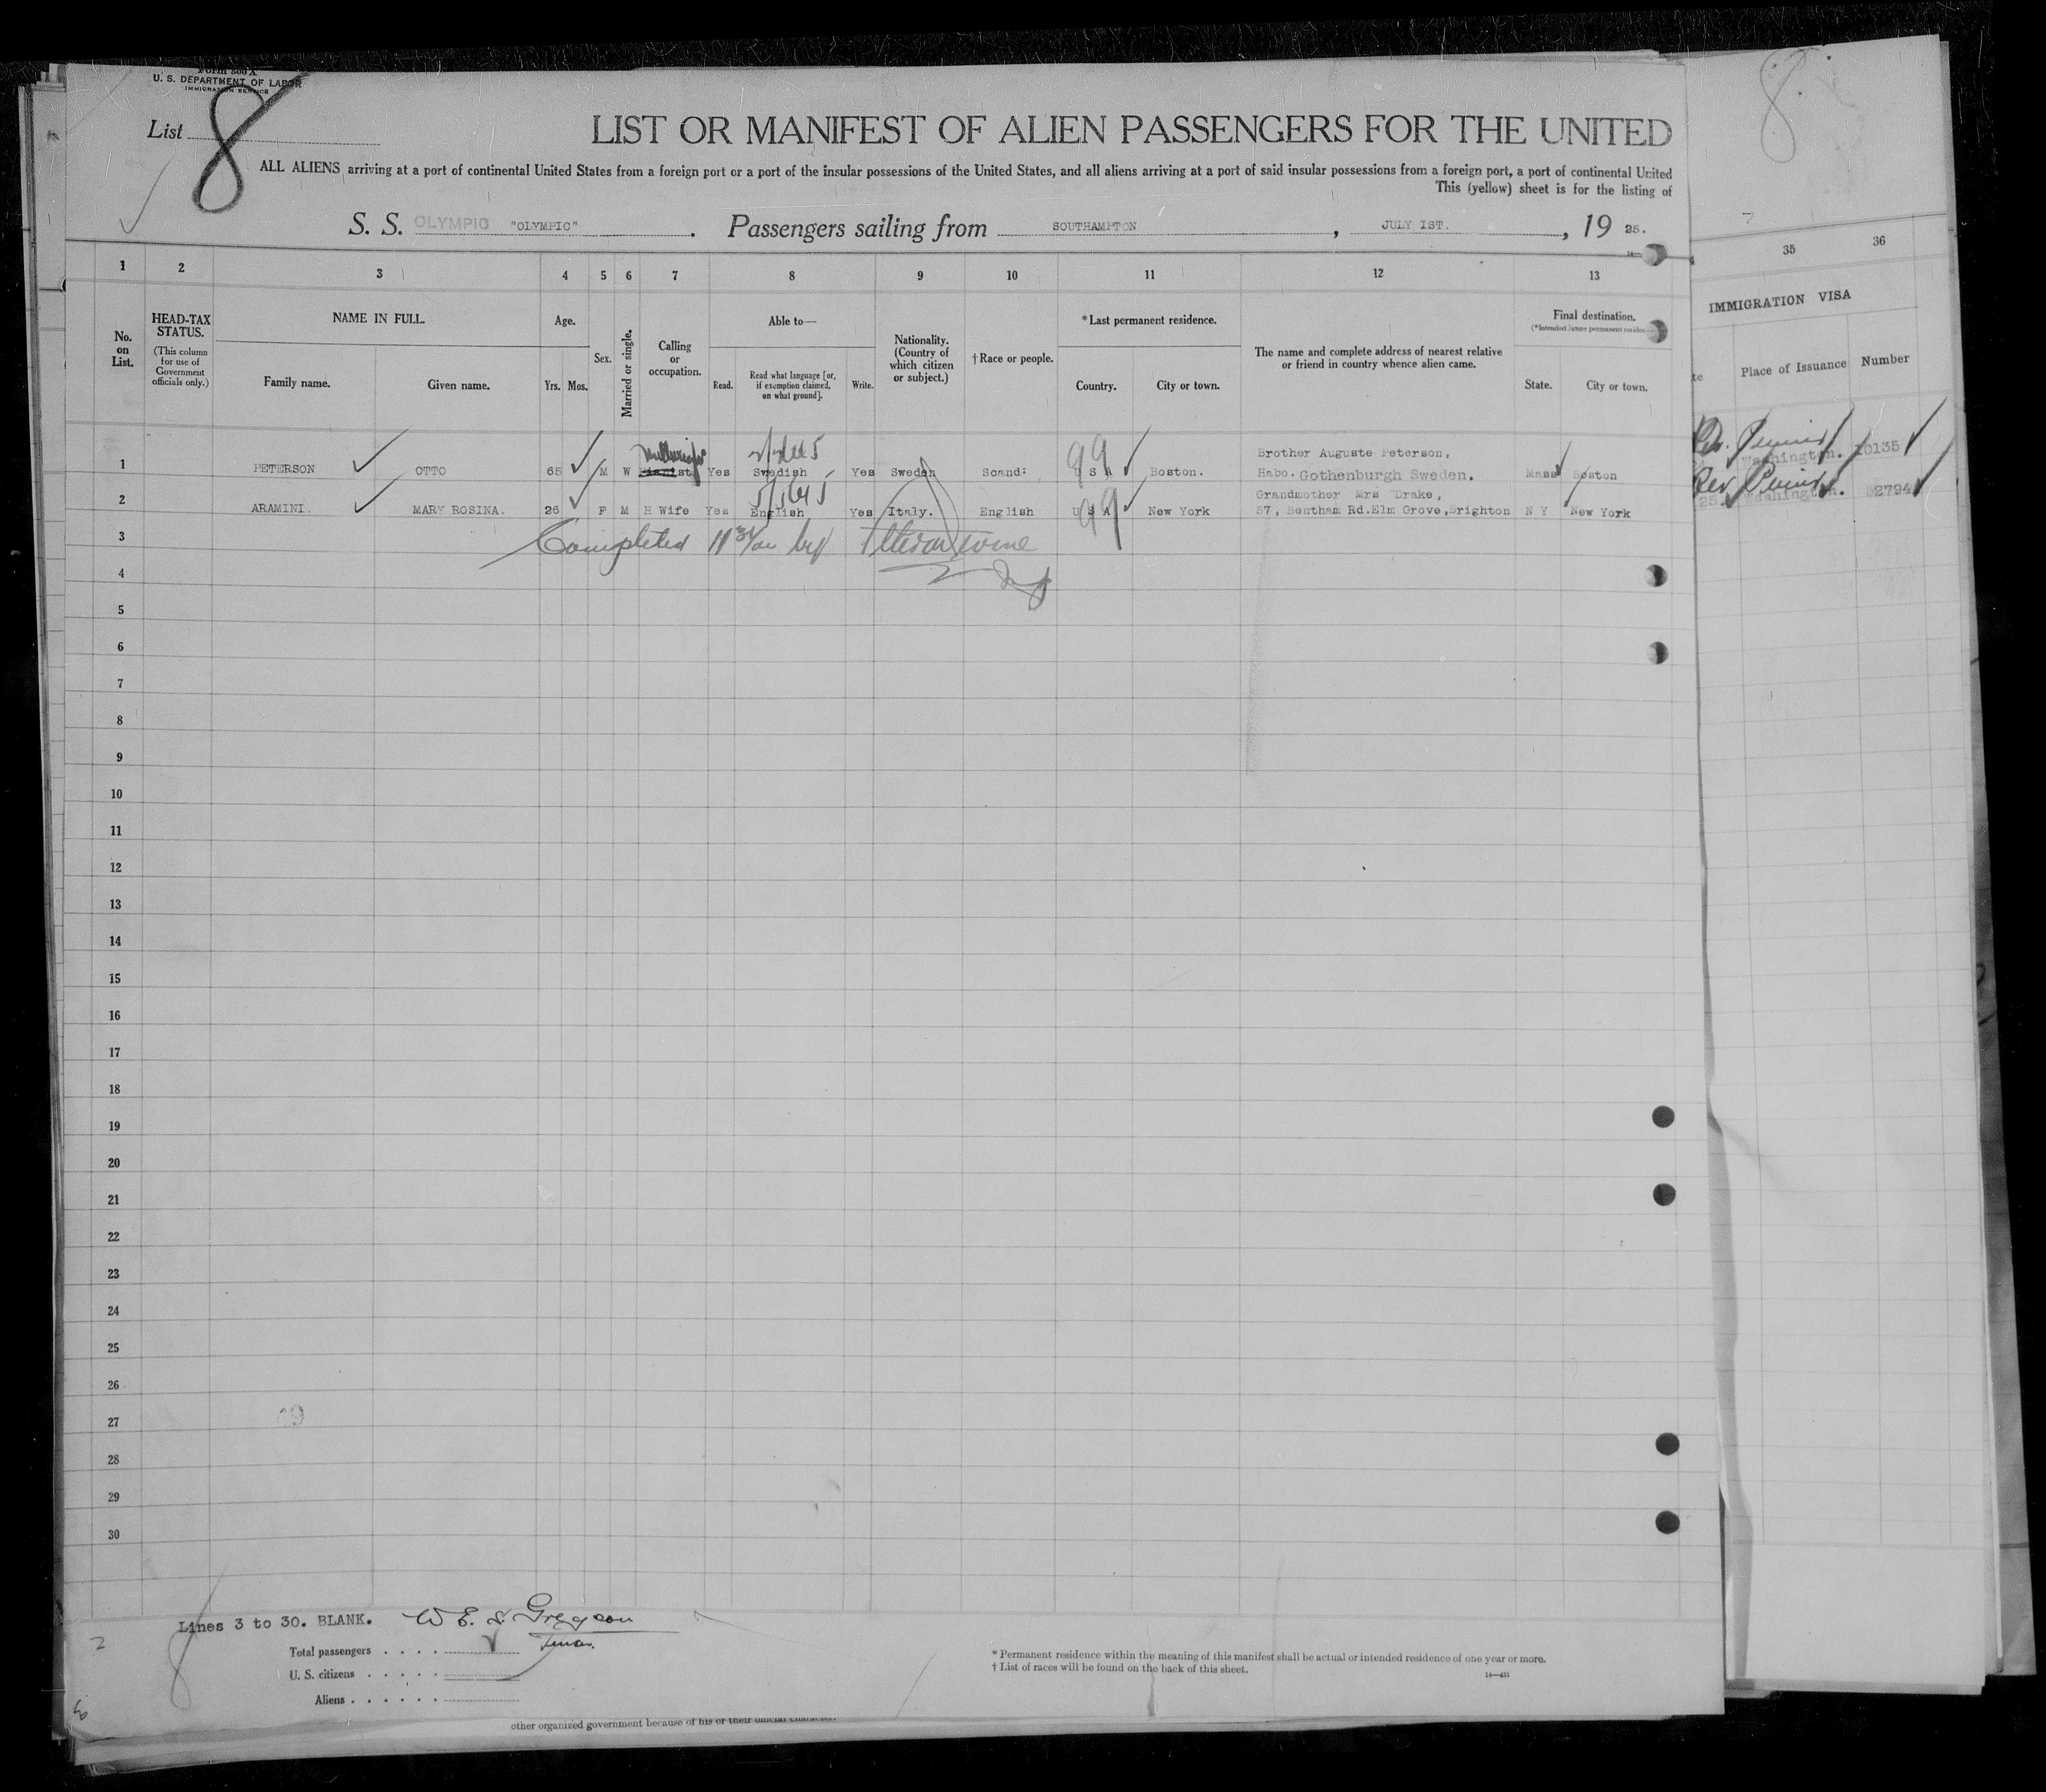 Form 500 A
U. S. DEPARTMENT OF LABOR
IMMIGRATION SERVICE
List 8
LIST OR MANIFEST OF ALIEN PASSENGERS FOR THE UNITED
ALL ALIENS arriving at a port of continental United States from a foreign port or a port of the insular possessions of the United States, and all aliens arriving at a port of said insular possessions from a foreign port, a port of continental United
This (yellow) sheet is for the listing of
S. S. OLYMPIC "OLYMPIC". Passengers sailing from SOUTHAMPTON, JULY 1ST., 19 25.
1 2 3 4 5 6 7 8 9 10 11 12 13
No. on List.
HEAD-TAX STATUS.
(This column for use of Government officials only.)
NAME IN FULL.
Family name. Given name.
Age.
Yrs. Mos.
Sex.
Married or single.
Calling or occupation.
Able to—
Read. Read what language [or, if exemption claimed, on what ground]. Write.
Nationality. (Country of which citizen or subject.)
† Race or people.
* Last permanent residence.
Country. City or town.
The name and complete address of nearest relative or friend in country whence alien came.
Final destination.
(*Intended future permanent residen
State. City or town.
1 PETERSON OTTO 65 M W Yes Swedish Yes Sweden Scand: U S A Boston. Brother Auguste Peterson, Mass Boston
Habo. Gothenburgh Sweden.
2 ARAMINI. MARY ROSINA. 26 F M H Wife Yes English Yes Italy. English U S A New York Grandmother Mrs Drake, N Y New York
57, Bentham Rd. Elm Grove, Brighton
99
99
3 Completed by
4
5
6
7
8
9
10
11
12
13
14
15
16
17
18
19
20
21
22
23
24
25
26
27
28
29
30
Lines 3 to 30. BLANK. W E. S. Gregson
Total passengers . . . .
U. S. citizens . . . . .
Aliens . . . . . .
* Permanent residence within the meaning of this manifest shall be actual or intended residence of one year or more.
† List of races will be found on the back of this sheet.
other organized government because of his or their official character.
8
35 36
IMMIGRATION VISA
te Place of Issuance Number
Washington. 10135
25. Washington. 52794